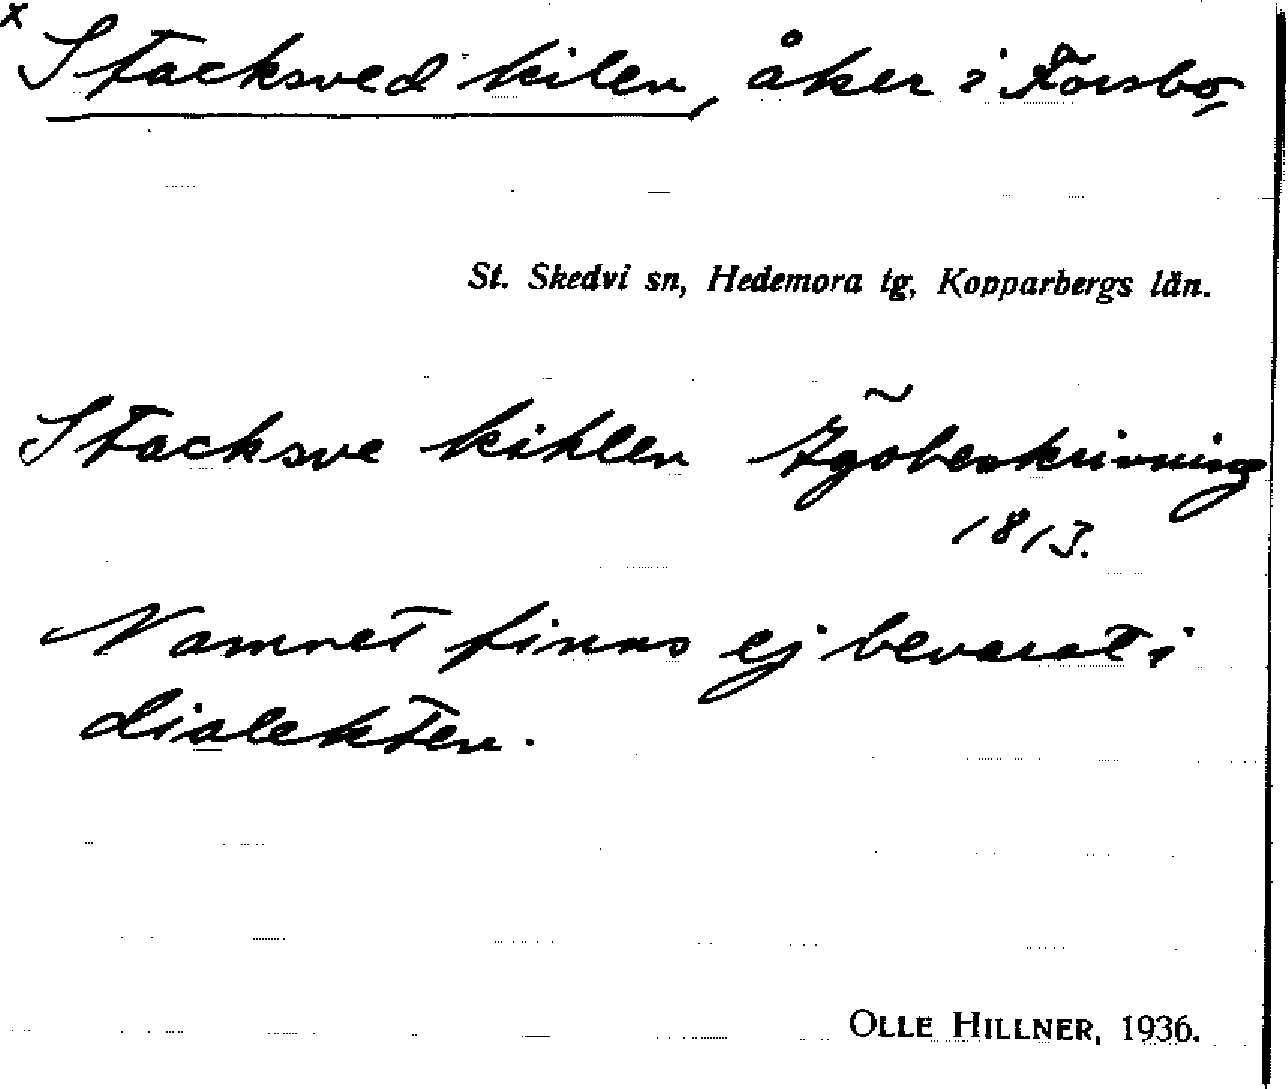 x
Stacksved kilen, åker i Forsbo,
St. Skedvi sn, Hedemora tg, Kopparbergs län.
Stacksve kihlen Ägobeskrivning
1813.
Namnet finns ej bevarat i
dialekten.
OLLE HILLNER, 1936.